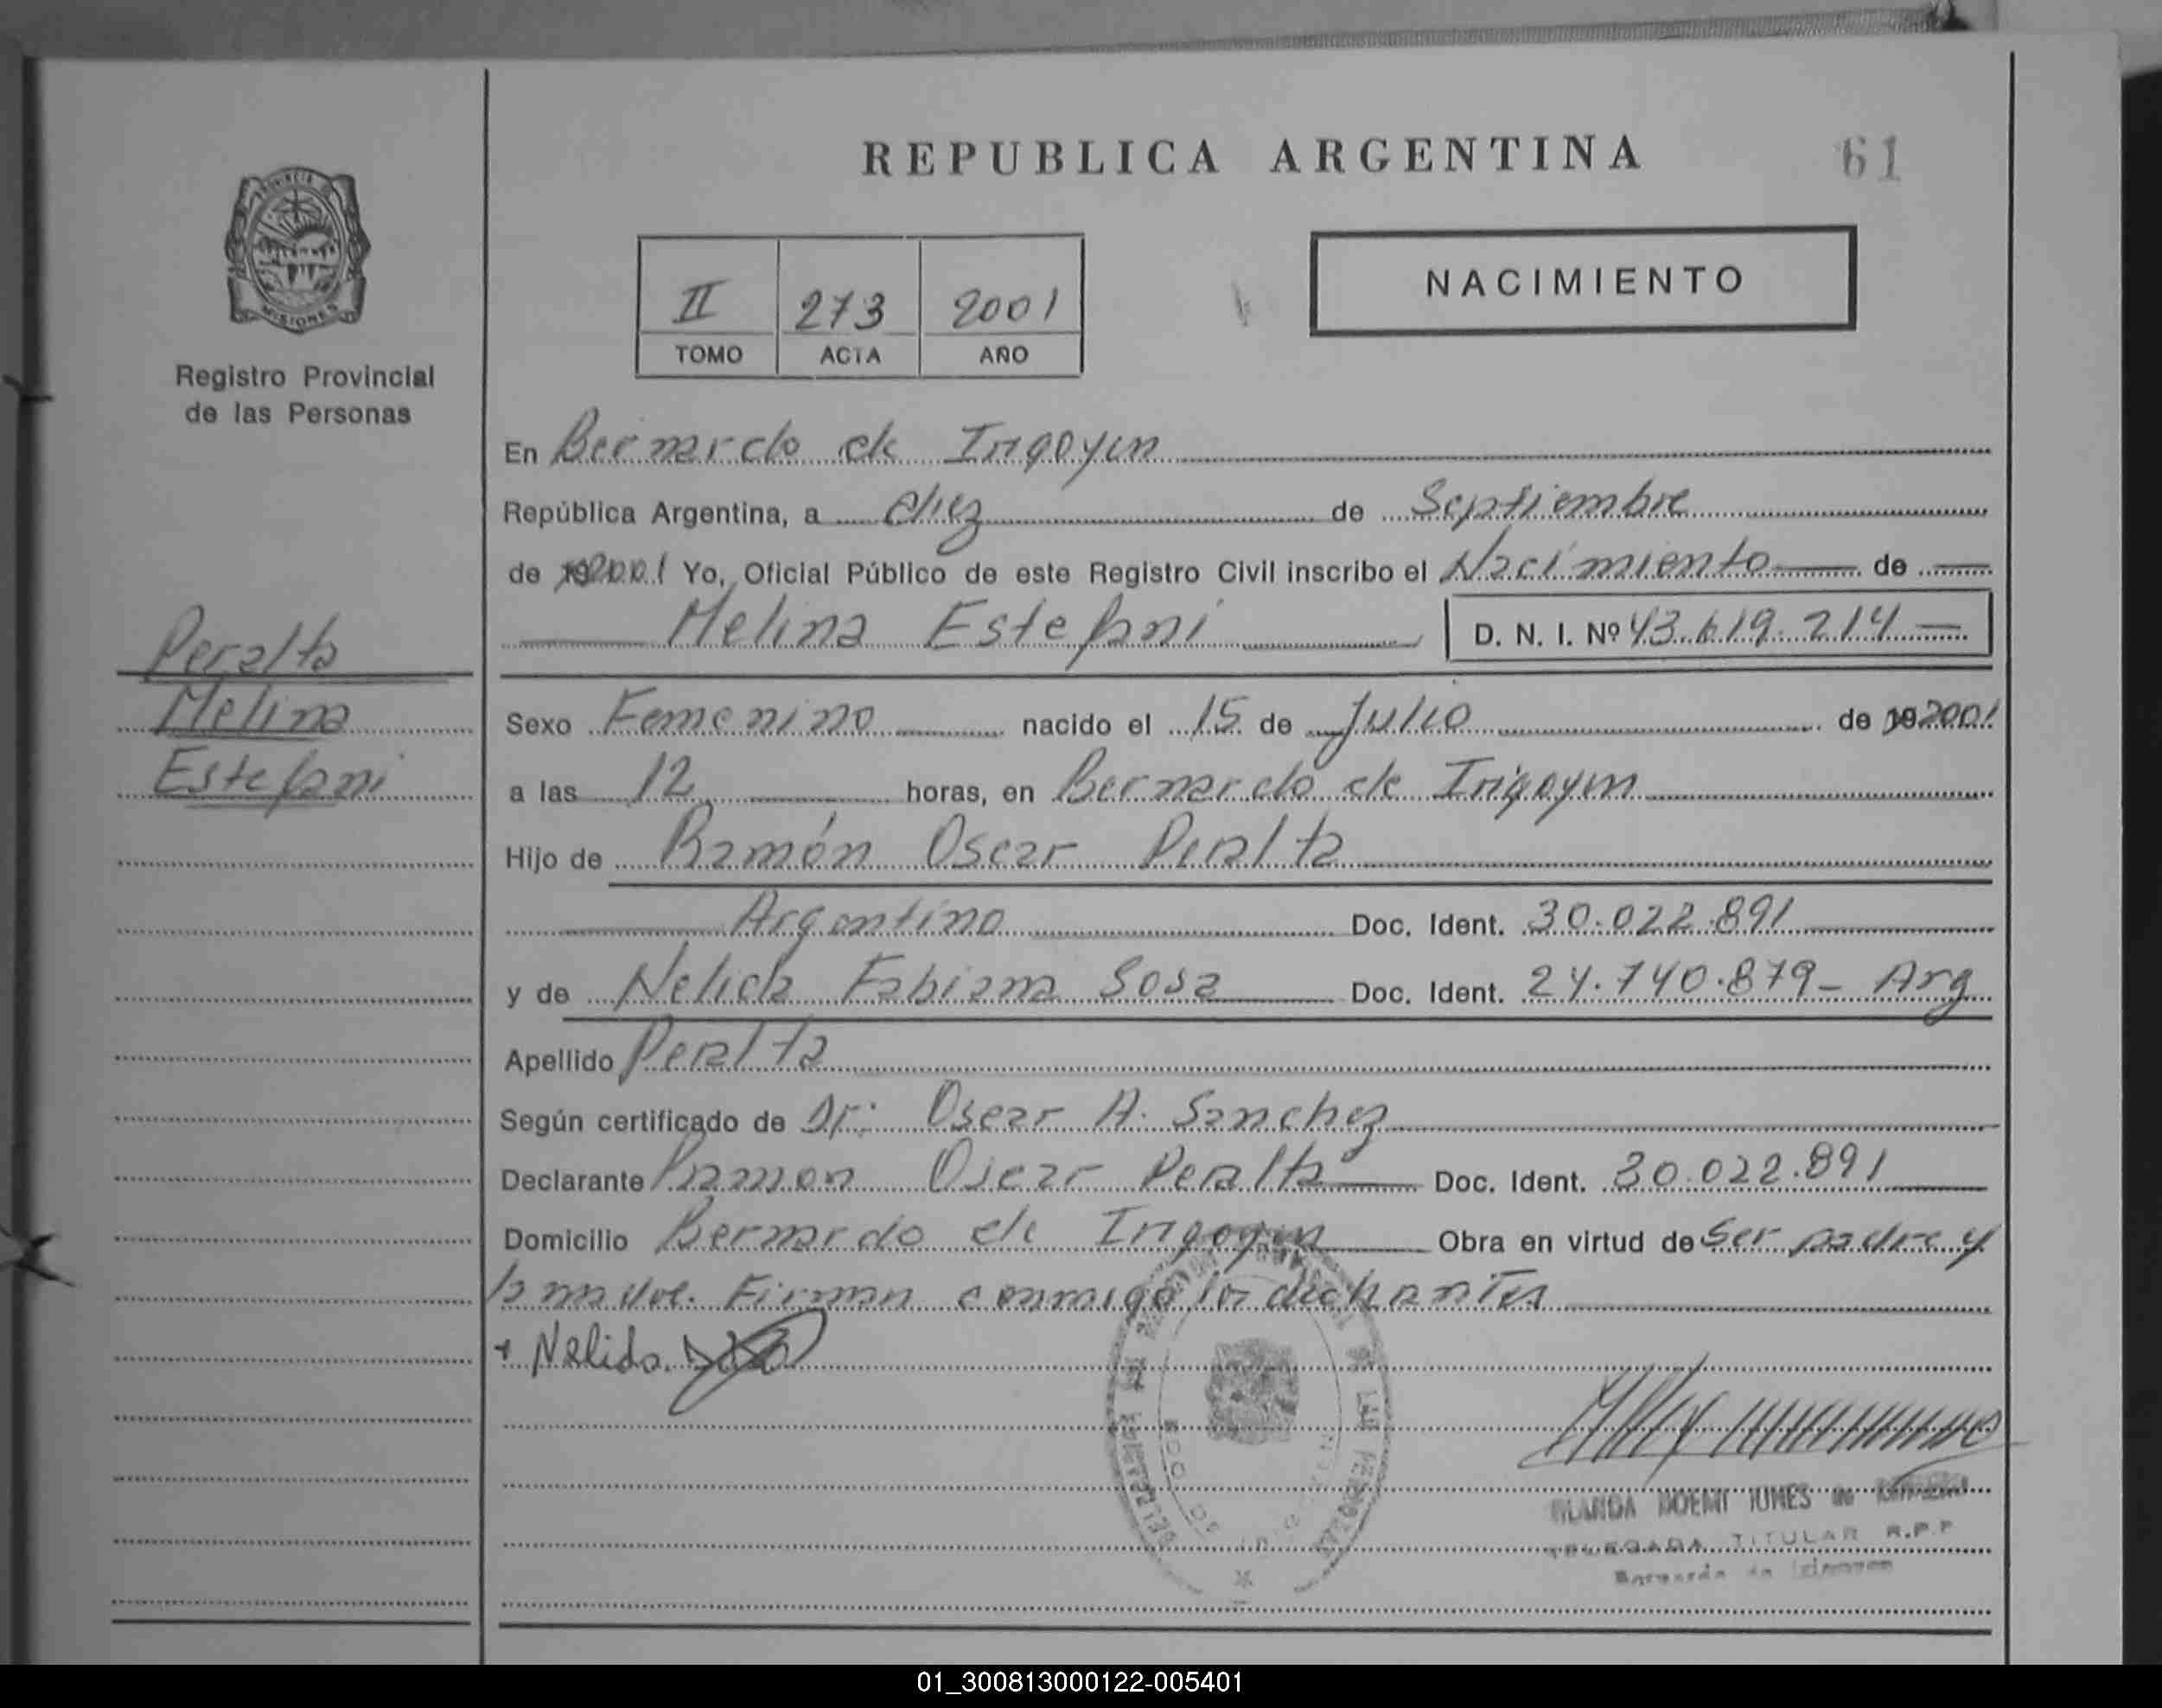 REPUBLICA ARGENTINA
61
PROVINCIA DE
MISIONES
Registro Provincial
de las Personas
II 273 2001
TOMO ACTA AÑO
NACIMIENTO
En Bernardo de Irigoyen
República Argentina, a diez de Septiembre
de 192001 Yo, Oficial Público de este Registro Civil inscribo el Nacimiento de
Melina Estefani D. N. I. Nº 43.619.214
Peralta
Melina
Estefani
Sexo Femenino nacido el 15 de Julio de 192001
a las 12 horas, en Bernardo de Irigoyen
Hijo de Ramón Oscar Peralta
Argentino Doc. Ident. 30.022.891
y de Nelida Fabiana Sosa Doc. Ident. 24.740.879- Arg
Apellido Peralta
Según certificado de Dr: Oscar A. Sanchez
Declarante Ramon Oscar Peralta Doc. Ident. 30.022.891
Domicilio Bernardo de Irigoyen Obra en virtud de Ser padre y
la madre. Firman conmigo los declarantes
+ Nelida
NOEMI
TITULAR R.P.P
Bernardo de Irigoyen
01_300813000122-005401